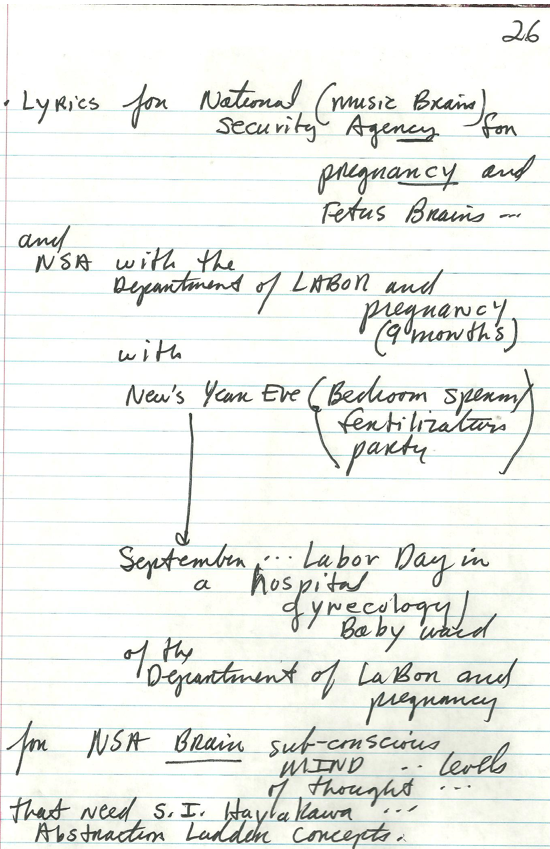 26
. Lyrics for National (music Brains)
Security Agency for
pregnancy and
Fetus Brains ---
and
NSA with the
Department of LABOR and
pregnancy
(9 months)
with
New's Year Eve (Bedroom sperm
fertilization
party)
September ... Labor Day in
a hospital
gynecology/
Baby ward
of the
Department of LaBor and
pregnancy
for NSA BRAIN sub-conscious
MIND .. levels
of thought ...
that need S. I. Hayakawa ...
Abstraction Ladder concepts.